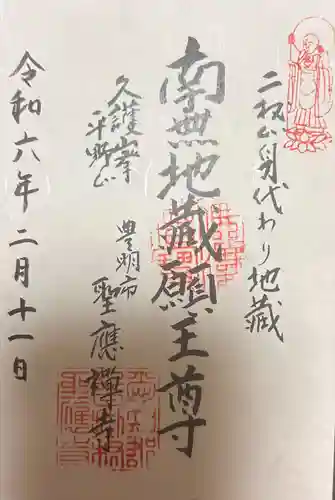 二村山身代わり地蔵
南無地蔵願王尊
久護峯
平野山
豊明市
聖應禅寺
令和六年二月十一日